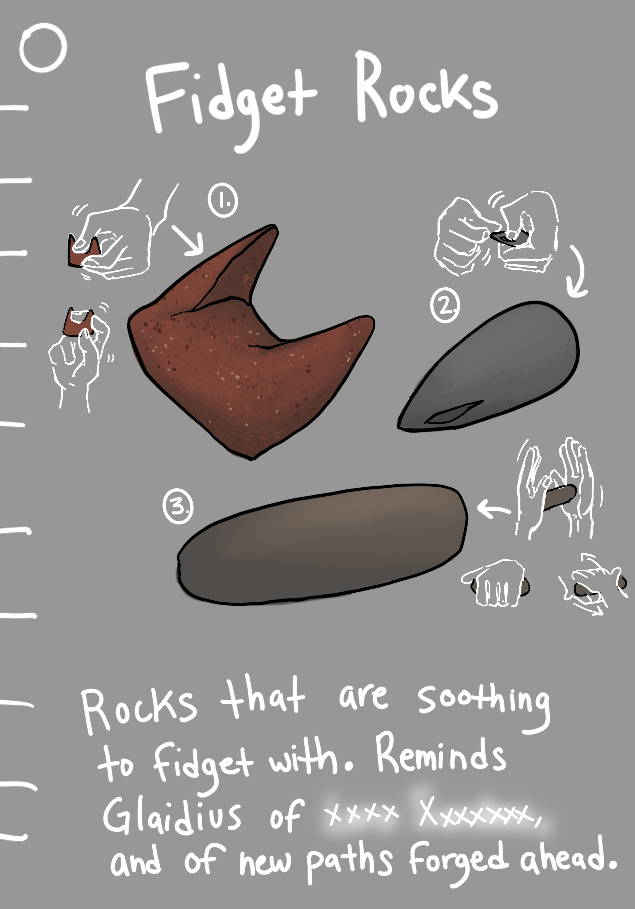 Fidget Rocks
1.
2.
3.
Rocks that are soothing
to fidget with. Reminds
Glaidius of xxxx Xxxxxxx,
and of new paths forged ahead.